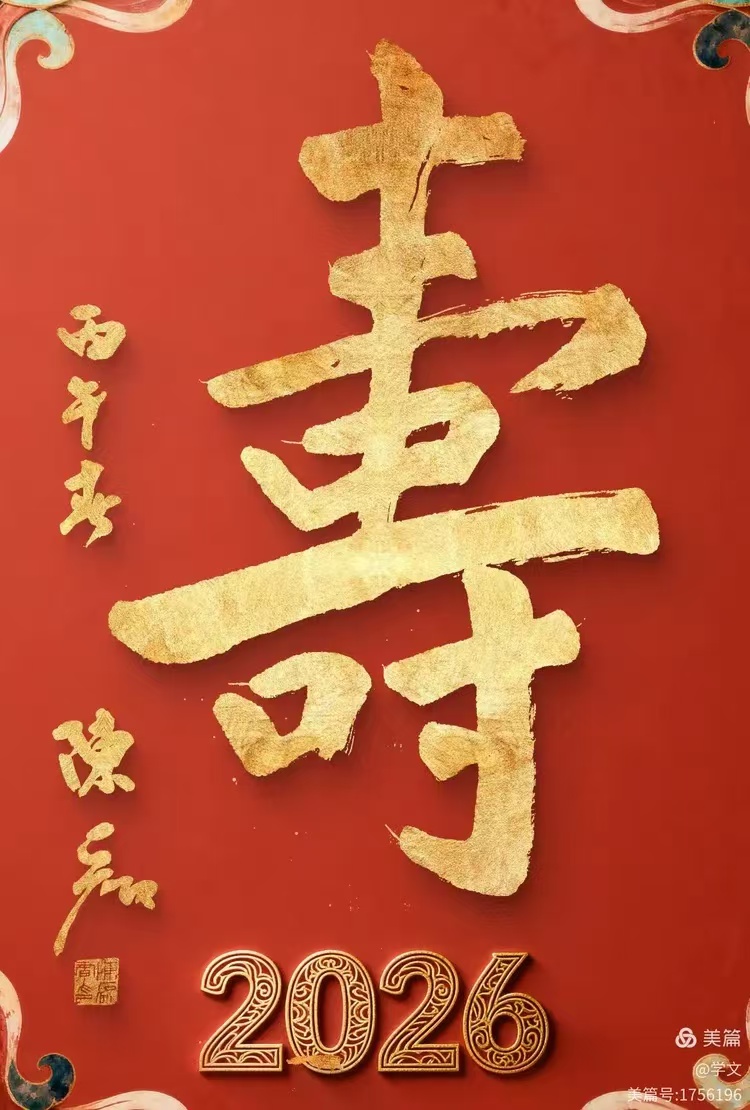 壽
丙午春
陳
2026
美篇
@学文
美篇号:1756196